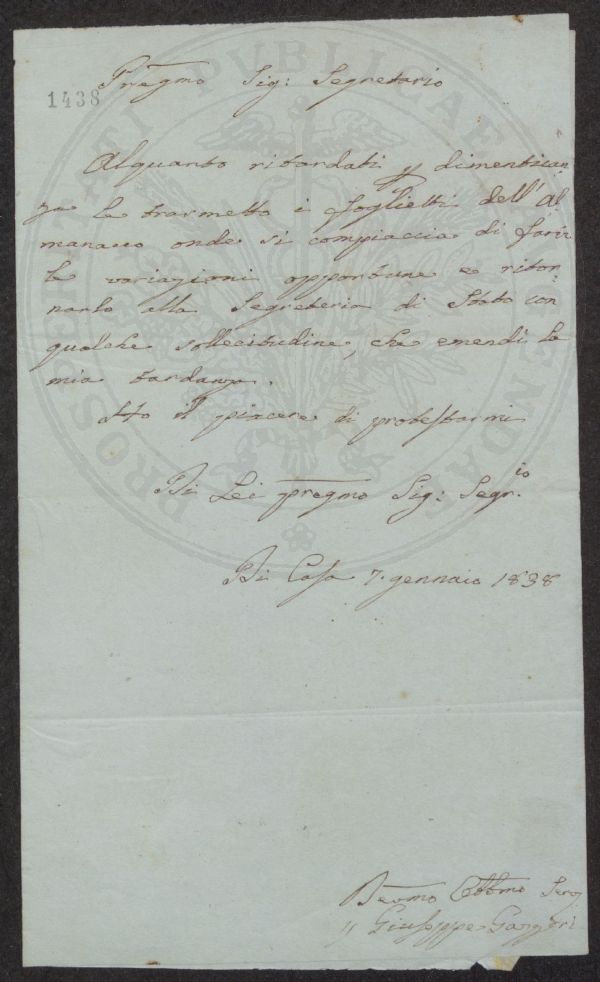 Pregmo Sig: Segretario
1438
Alquanto ritardati p dimentican
za Le trasmetto i foglietti dell'Al
manacco onde si compiaccia di farvi
le variazioni opportune e ritor
narlo alla Segreteria di Stato con
qualche sollecitudine, che emendi la
mia tardanza.
Ho il piacere di protestarmi
Di Lei pregmo Sig: Segr.io
Di Casa 7. gennaio 1838
Devmo Obbmo Serv
Giuseppe
PROSPERITATI PVBLICAE AVGENDAE